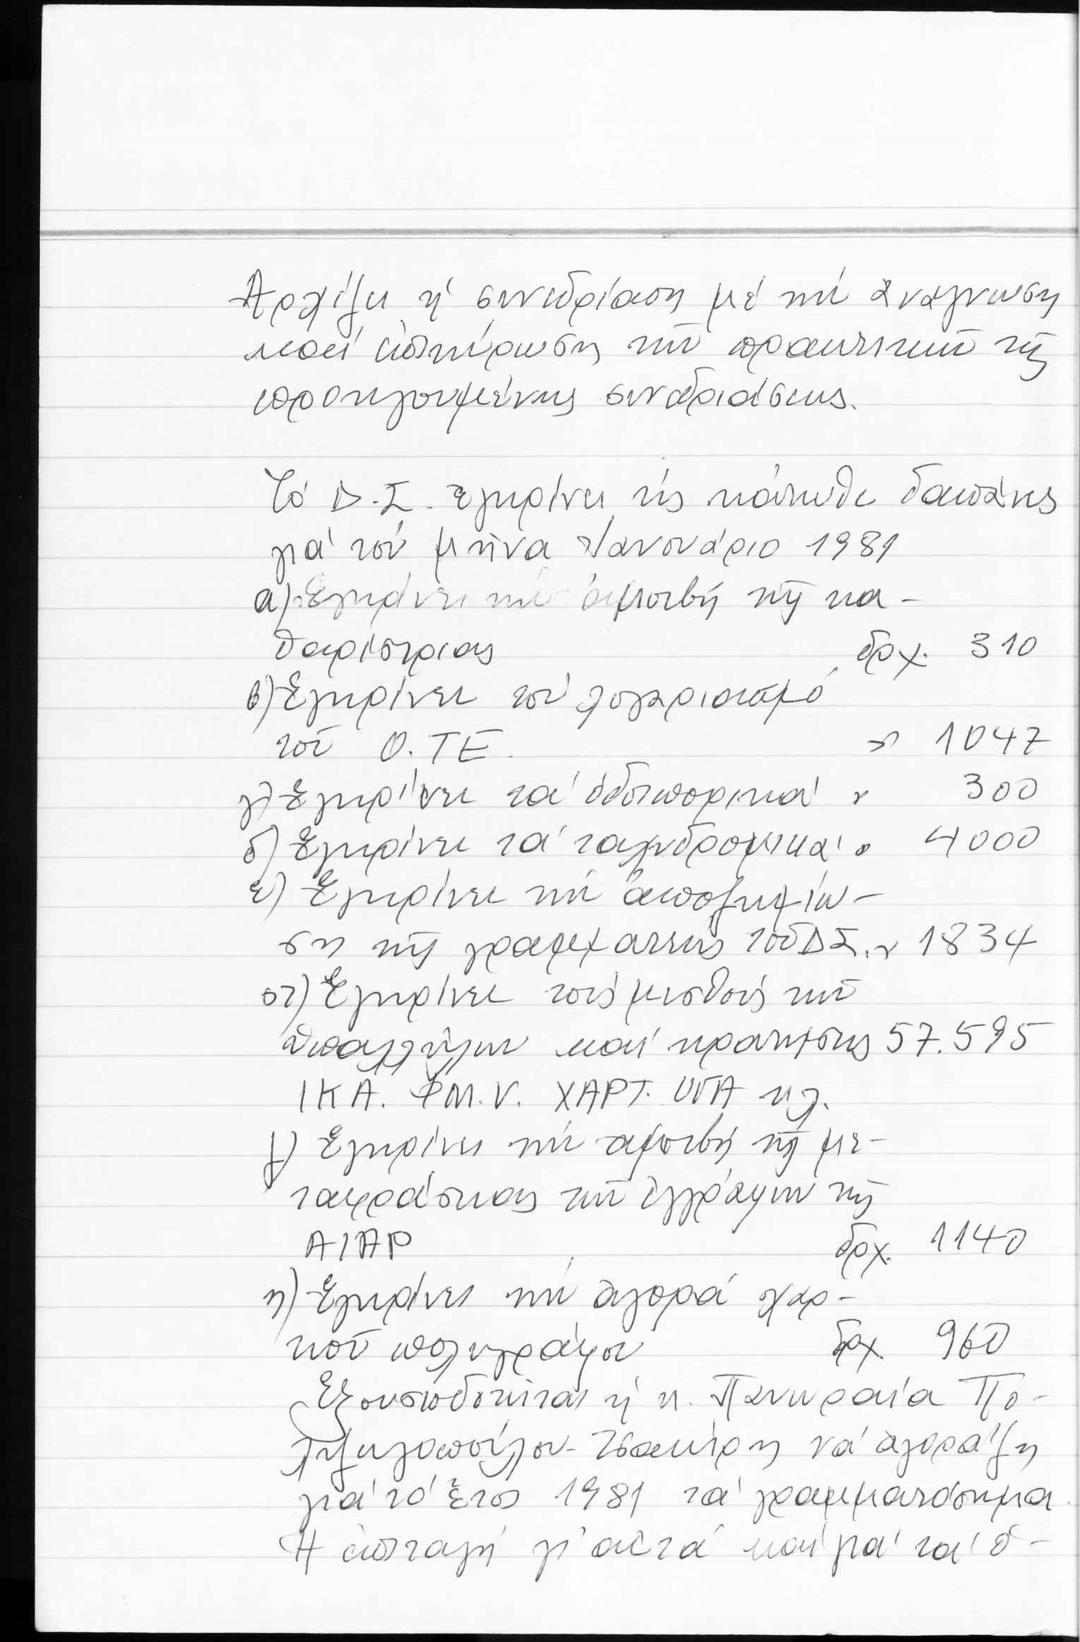 Ἀρχίζει ἡ συνεδρίαση μέ τήν ἀνάγνωση
καί ἐπικύρωση τῶν πρακτικῶν τῆς
προηγουμένης συνεδριάσεως.
Τό Δ.Σ. ἐγκρίνει τίς κάτωθι δαπάνες
γιά τόν μῆνα Ἰανουάριο 1981
α) Ἐγκρίνει τήν ἀμοιβή τῆς κα-
θαρίστριας δρχ. 310
β) Ἐγκρίνει τόν λογαριασμό
τοῦ Ο.ΤΕ. " 1047
γ) Ἐγκρίνει τά ὁδοιπορικά " 300
δ) Ἐγκρίνει τά ταχυδρομικά " 4000
ε) Ἐγκρίνει τήν ἀποζημίω-
ση τῆς γραμματέως τοῦ Δ.Σ. " 1834
στ) Ἐγκρίνει τούς μισθούς τῶν
ὑπαλλήλων καί κρατήσεις 57.595
ΙΚΑ. ΦΜ.Υ. ΧΑΡΤ. ΟΓΑ κλ.
ζ) Ἐγκρίνει τήν ἀμοιβή τῆς με-
ταφράσεως τῶν ἐγγράφων τῆς
AIAP δρχ. 1140
η) Ἐγκρίνει τήν ἀγορά χαρ-
τιοῦ πολυγράφου δρχ. 960
Ἐξουσιοδοτεῖται ἡ κ. Παγκραtία Πο-
- Τσακίρη νά ἀγοράζη
γιά τό ἔτος 1981 τά γραμματόσημα.
Ἡ ἐπιταγή γι' αὐτά καί γιά τά ὁ-